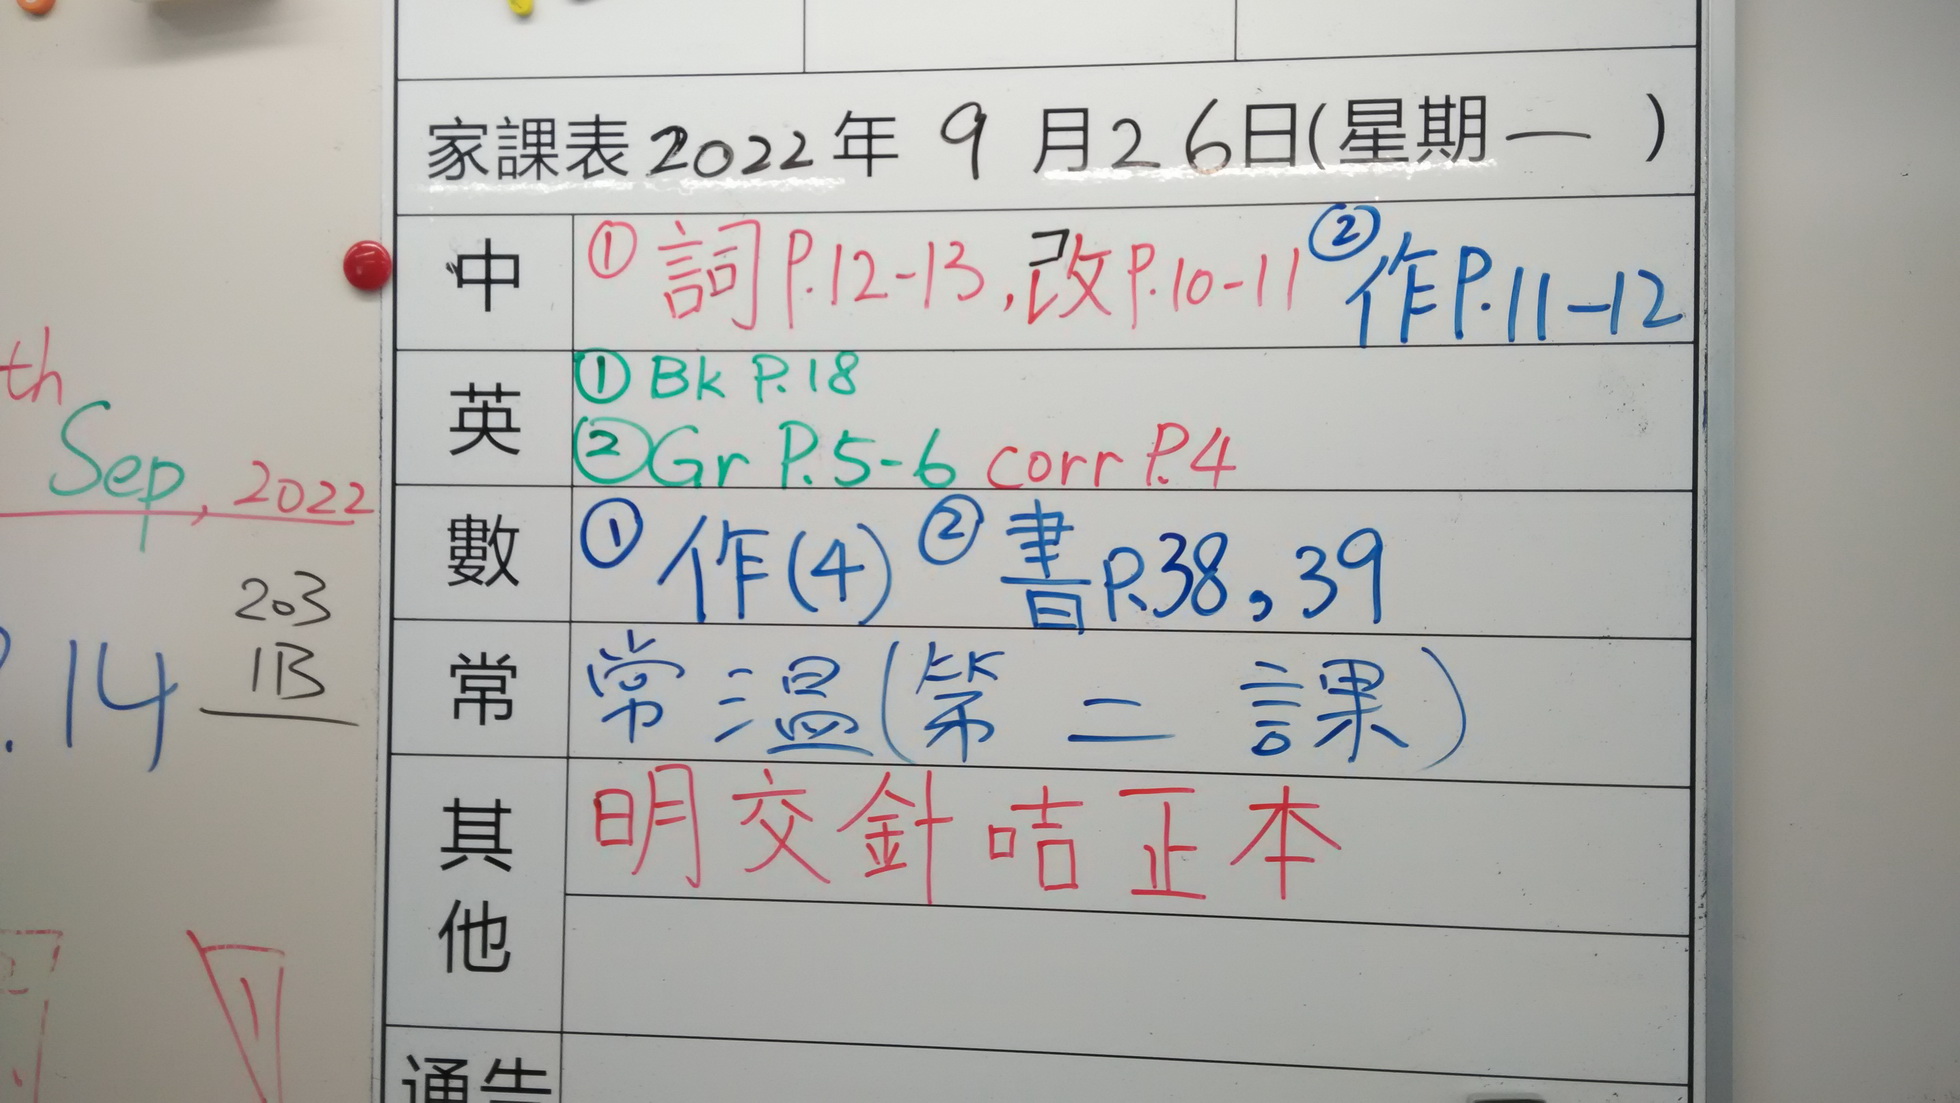 家課表2022年 9 月26日(星期一 )
中 ① 詞P.12-13,改P.10-11 ② 作P.11-12
英 ① Bk P.18
② Gr P.5-6 corr P.4
數 ① 作(4) ② 書P.38,39
常 常溫(第二課)
其他 明交針咭正本
通告
th
Sep, 2022
203
.14 1B